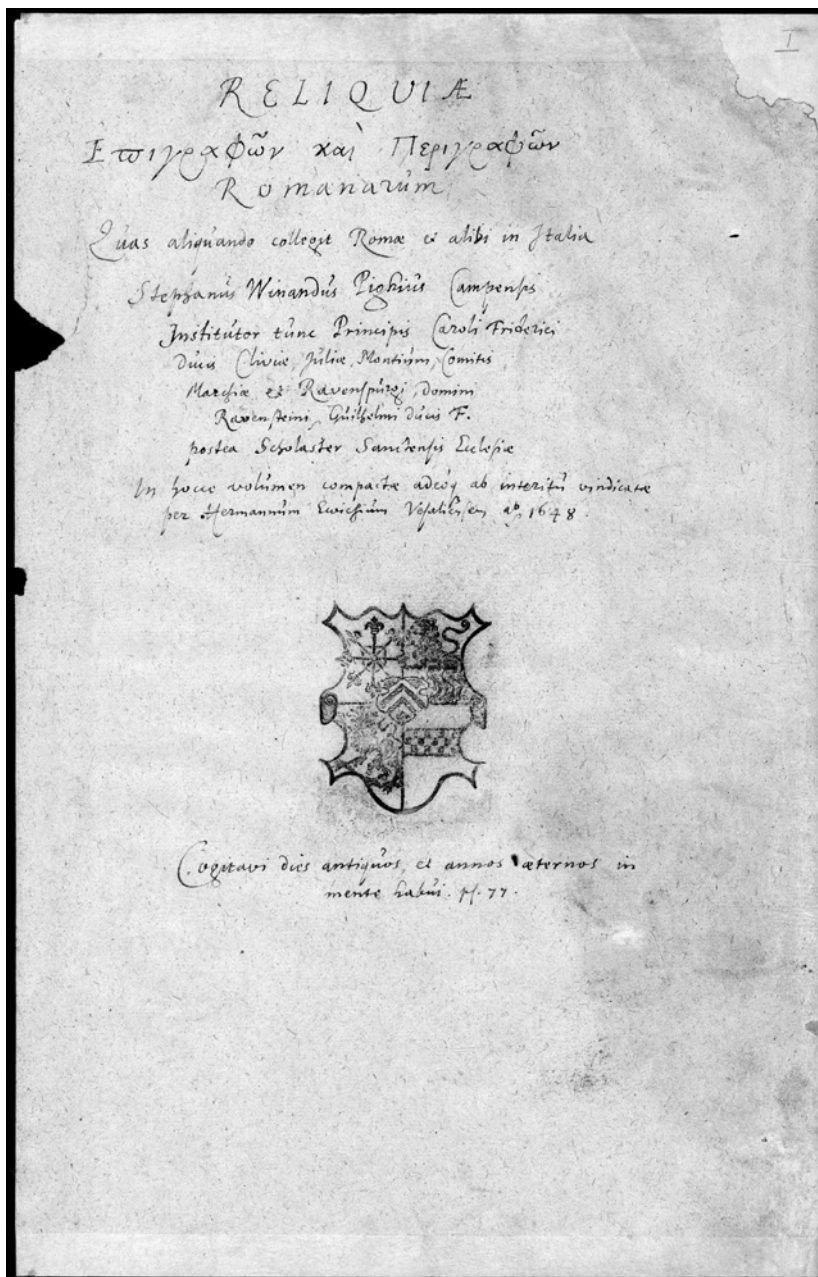 I
RELIQUIÆ
Επιγραφῶν καὶ Περιγραφῶν
Romanarum
Quas aliquando collegit Romæ et alibi in Italia
Stephanus Winandus Pighius Campensis
Institutor tunc Principis Caroli Friderici
Ducis Cliviæ, Juliæ, Montium, Comitis
Marchiæ et Ravenspurgi, Domini
Ravensteini, Guilhelmi ducis F.
postea Scholaster Sanctensis Ecclesiæ
In hocce volumen compactæ adeoq ab interitu vindicatæ
per Hermannum Ewichium Vesaliensem aº 1648.
Cogitavi dies antiquos, et annos æternos in
mente habui. ps. 77.